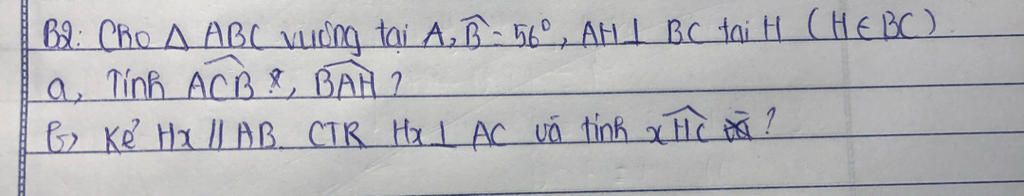 B2: Cho Δ ABC vuông tại A, B̂ = 56°, AH ⊥ BC tại H (H ∈ BC)
a, Tính ACB̂, BAĤ ?
b) Kẻ Hx // AB. CTR Hx ⊥ AC và tính xHĈ ?